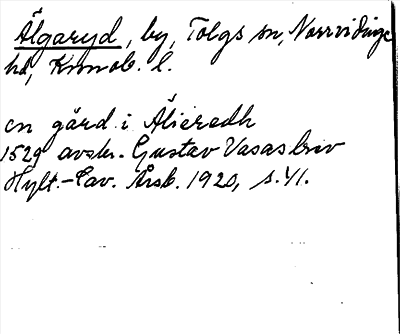 Älgaryd, by, Tolgs sn, Norrvidinge
hd, Kronob. l.
en gård i Älieredh
1529 avskr. Gustav Vasas brev
Hylt.-Cav. Årsb. 1920, s. 41.